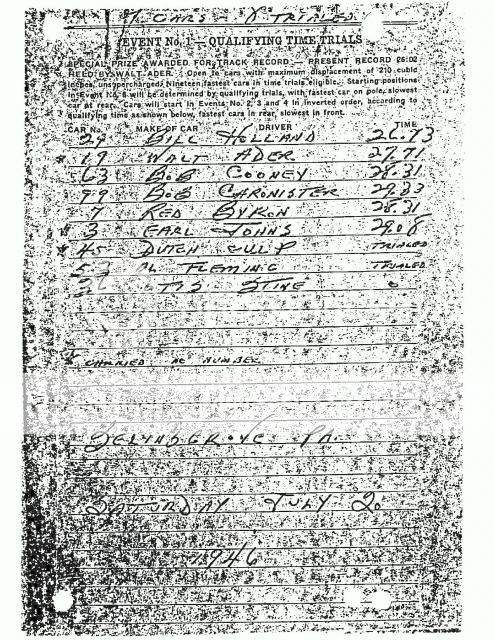 CARS - TRIALED
EVENT No. 1 — QUALIFYING TIME TRIALS
SPECIAL PRIZE AWARDED FOR TRACK RECORD — PRESENT RECORD 26:02
HELD BY WALT ADER. Open to cars with maximum displacement of 210 cubic
inches, unsupercharged. Nineteen fastest cars in time trials eligible. Starting positions
in Event No. 6 will be determined by qualifying trials, with fastest car on pole, slowest
car at rear. Cars will start in Events No. 2, 3 and 4 in inverted order, according to
qualifying time as shown below, fastest cars in rear, slowest in front.
CAR No. MAKE OF CAR DRIVER TIME
29 BILL HOLLAND 26.73
* 19 WALT ADER 27.71
63 BOB COONEY 28.31
99 BOB CARONISTER 29.33
7 RED BYRON 28.31
* 3 EARL JOHNS 29.08
* 45 DUTCH CULP TRIALED
53 AL FLEMING TRIALED
OTIS STINE
* CARRIED NO NUMBER
SELINSGROVE PA.
SATURDAY JULY 20
1946